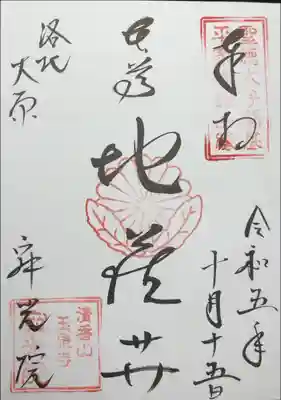 奉拝
令和五年
十月十五日
本尊
地蔵𦬇
洛北
大原
寂光院
清香山
玉泉寺